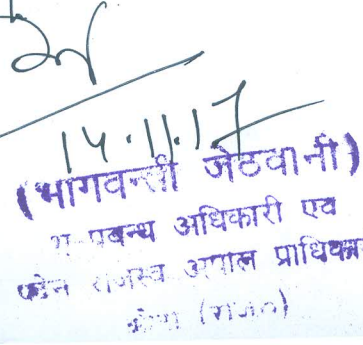 14.11.17
(भागवन्ती जेठवानी)
भू प्रबन्ध अधिकारी एवं
पदेन राजस्व अपील प्राधिका
कोटा (राज०)